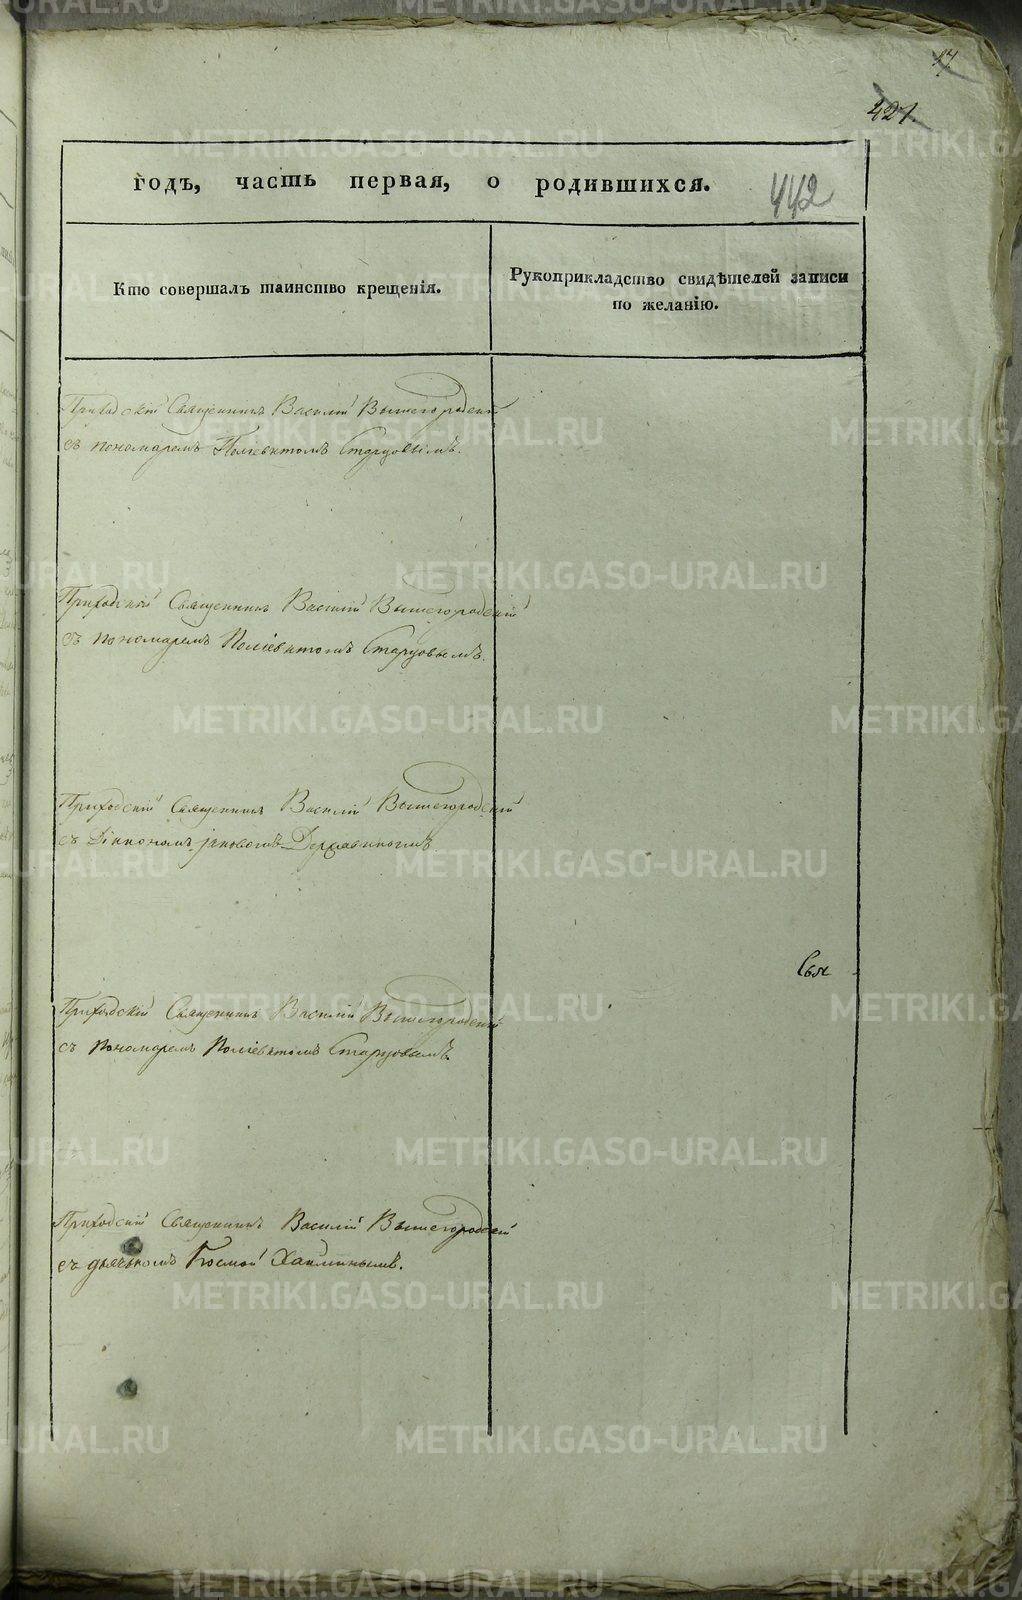 17
427.
годъ, часть первая, о родившихся.
442
Кто совершалъ таинство крещенія.
Рукоприкладство свидѣтелей записи
по желанію.
Приходскій Священникъ Василій Вышегородскій
съ пономаремъ Поліевктомъ Старцовымъ.
Приходскій Священникъ Василій Вышегородскій
съ пономаремъ Поліевктомъ Старцовымъ.
Приходскій Священникъ Василій Вышегородскій
съ Діакономъ Іаковомъ Державинымъ.
Свя
Приходскій Священникъ Василій Вышегородскій
съ пономаремъ Поліевктомъ Старцовымъ.
Приходскій Священникъ Василій Вышегородскій
съ дьячкомъ Космой
METRIKI.GASO-URAL.RU